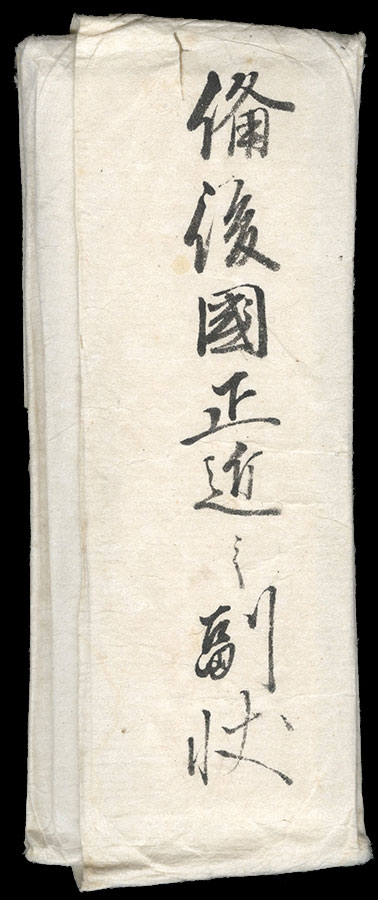 備後國正近之副状